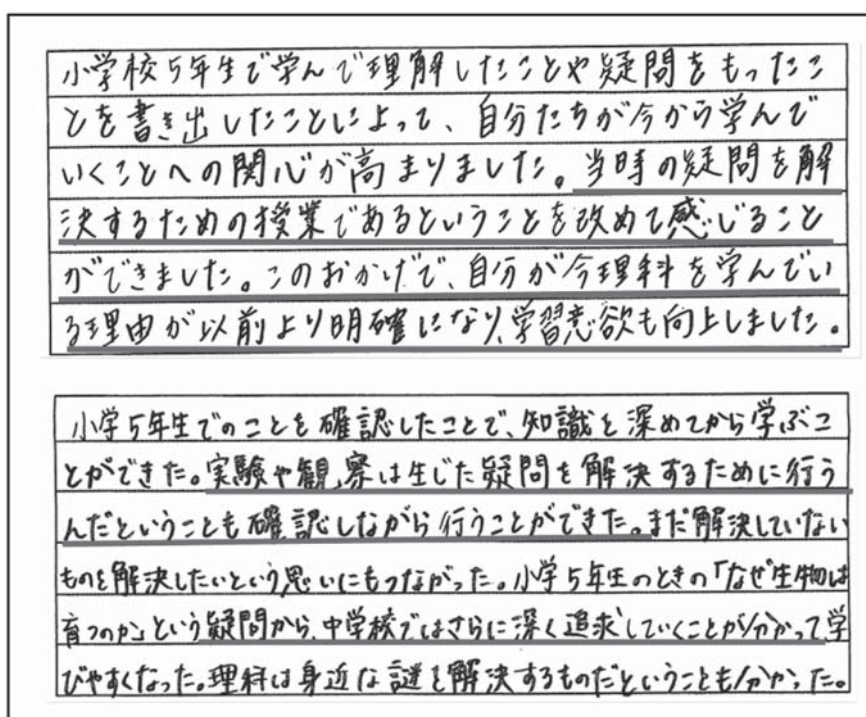 小学校5年生で学んで理解したことや疑問をもったこ
とを書き出したことによって、自分たちが今から学んで
いくことへの関心が高まりました。当時の疑問を解
決するための授業であるということを改めて感じること
ができました。このおかげで、自分が今理科を学んでい
る理由が以前より明確になり、学習意欲も向上しました。
小学5年生でのことを確認したことで、知識を深めてから学ぶこ
とができた。実験や観察は生じた疑問を解決するために行う
んだということも確認しながら行うことができた。まだ解決していない
ものを解決したいという思いにもつながった。小学5年生のときの「なぜ生物は
育つのか」という疑問から、中学校ではさらに深く追求していくことが分かって学
びやすくなった。理科は身近な謎を解決するものだということも分かった。